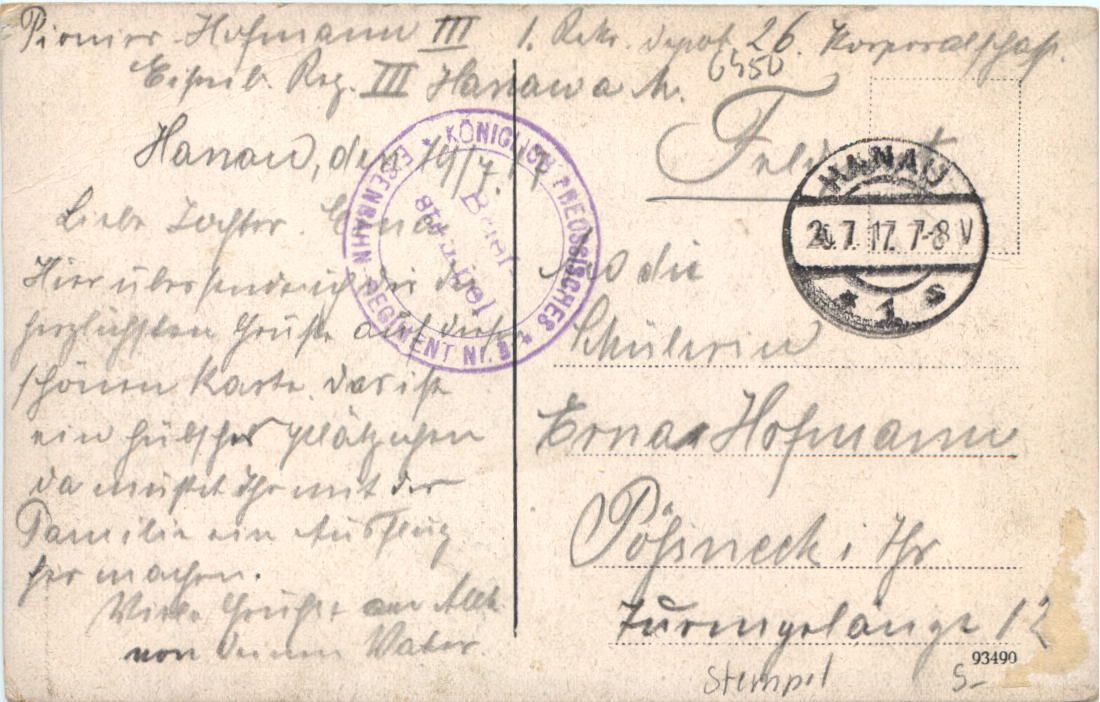 Pionier Hofmann III 1. Rekr. Depot 26. Korporalschaft.
Eisenb. Reg. III Hanau a M.
6450
Hanau, den 19/7.17
Liebe Tochter Erna
Hier übersende ich dir die
herzlichsten Grüße auf dieser
schönen Karte. das ist
ein hübsches Plätzchen
da müßet Ihr mit der
Familie ein Ausflug
her machen.
Viele Grüße an Alle
von Deinem Vater.
KÖNIGLICH PREUSSISCHES
EISENBAHN-REGIMENT Nr. 3
Brief
stempel
Feldpost
HANAU
20.7.17. 7-8 V
* 1 s
An die
Schülerin
Erna Hofmann
Pößneck i Thr
Turmgelänge 12
93490
Stempel
5-